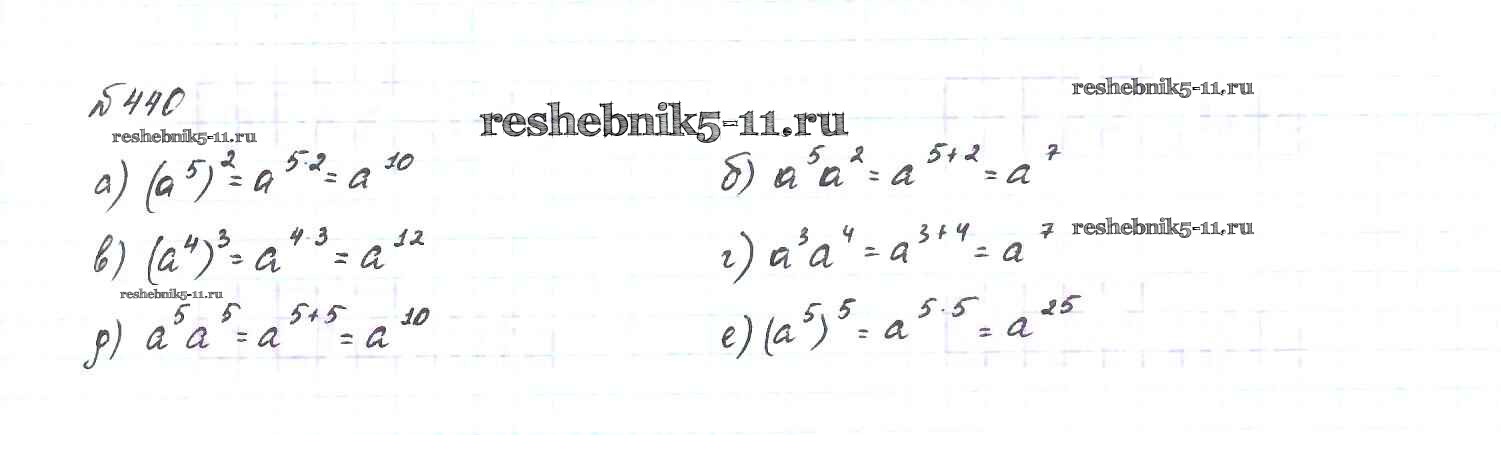 № 440
reshebnik5-11.ru
reshebnik5-11.ru
reshebnik5-11.ru
а) (a⁵)² = a⁵·² = a¹⁰
б) a⁵a² = a⁵⁺² = a⁷
в) (a⁴)³ = a⁴·³ = a¹²
г) a³a⁴ = a³⁺⁴ = a⁷
reshebnik5-11.ru
reshebnik5-11.ru
д) a⁵a⁵ = a⁵⁺⁵ = a¹⁰
е) (a⁵)⁵ = a⁵·⁵ = a²⁵